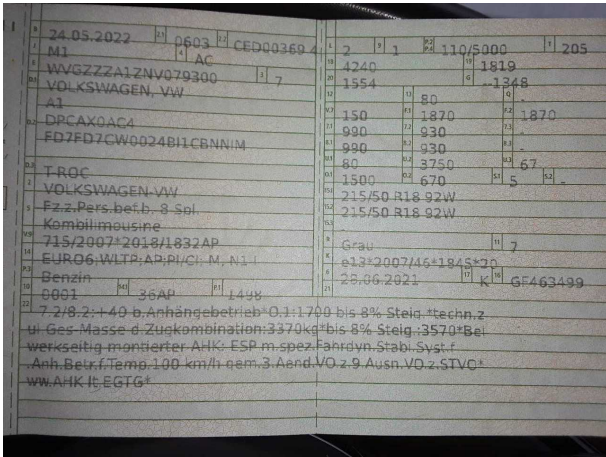 B 24.05.2022 2.1 0603 2.2 CED00369 4
J M1 4 AC
E WVGZZZA1ZNV079300 3 7
D.1 VOLKSWAGEN, VW
A1
D.2 DPCAX0AC4
FD7FD7CW0024BI1CBNNIM
D.3 T-ROC
2 VOLKSWAGEN-VW
5 Fz.z.Pers.bef.b. 8 Spl.
Kombilimousine
V.9 715/2007*2018/1832AP
14 EURO6;WLTP;AP;PI/CI M, N1 I
P.3 Benzin
10 0001 14.1 36AP P.1 1498
L 2 9 1 P.2 P.4 110/5000 T 205
18 4240 19 1819
20 1554 G --1348
12 13 80 Q -
V.7 150 F.1 1870 F.2 1870
7.1 990 7.2 930 7.3 -
8.1 990 8.2 930 8.3 -
U.1 80 U.2 3750 U.3 67
O.1 1500 O.2 670 S.1 5 S.2 -
15.1 215/50 R18 92W
15.2 215/50 R18 92W
15.3
R Grau 11 7
K e13*2007/46*1845*20
6 28.06.2021 17 K 16 GF463499
21
22 7.2/8.2:+40 b.Anhängebetrieb*O.1:1700 bis 8% Steig.*techn.z
ul Ges-Masse d.Zugkombination:3370kg*bis 8% Steig.:3570*Bei
werkseitig montierter AHK: ESP m.spez.Fahrdyn.Stabi.Syst.f
.Anh.Betr.f.Temp.100 km/h gem.3.Aend.VO.z.9.Ausn.VO.z.STVO*
ww.AHK lt.EGTG*